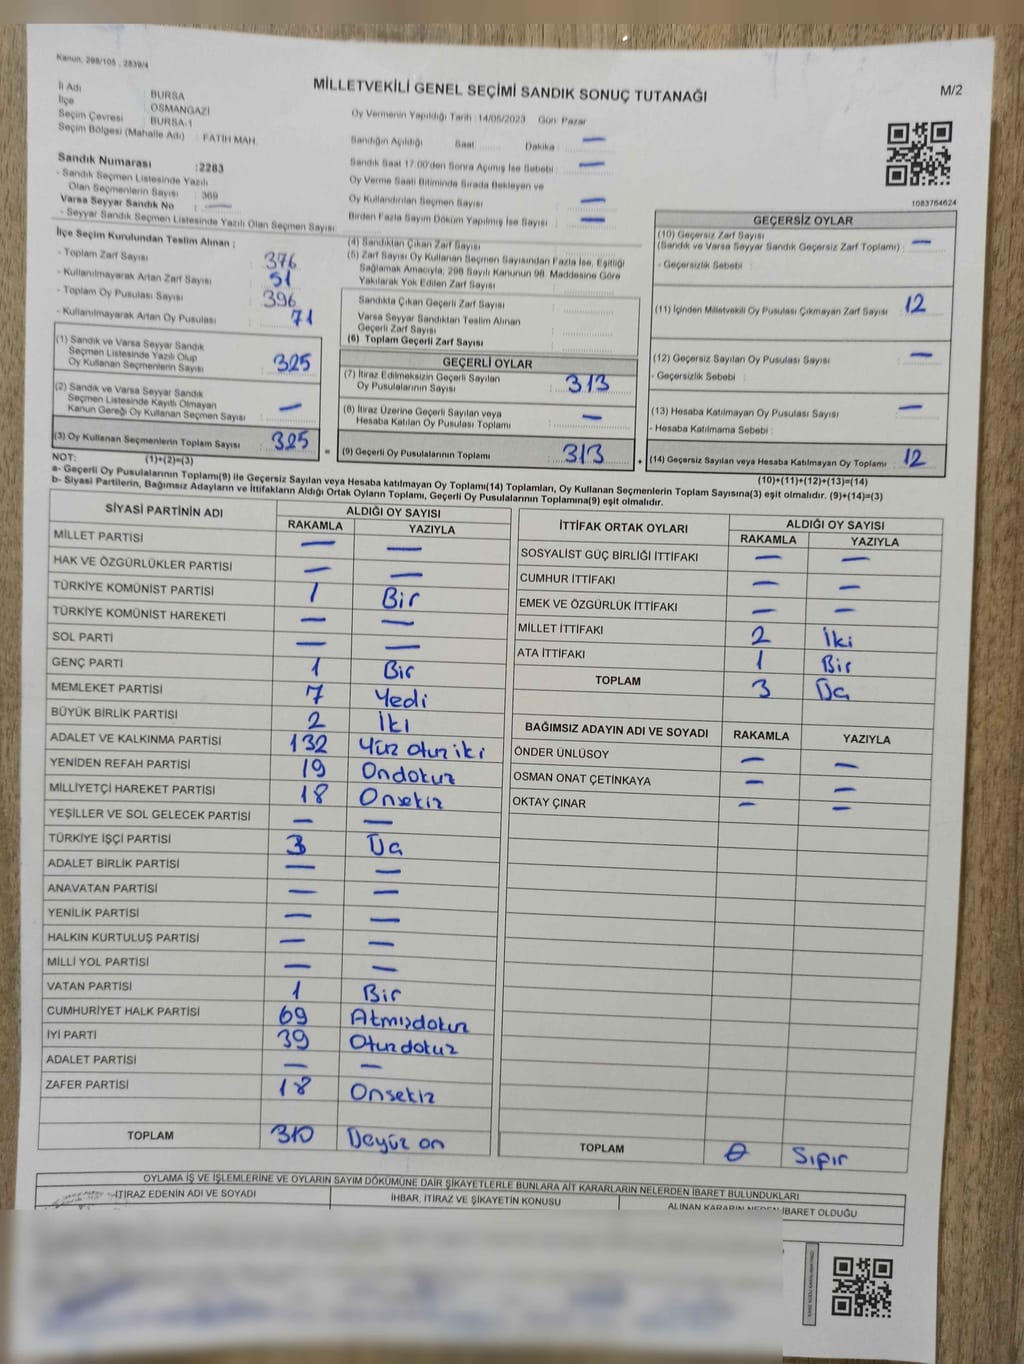 Kanun: 298/105 , 2839/4
MİLLETVEKİLİ GENEL SEÇİMİ SANDIK SONUÇ TUTANAĞI
M/2
İl Adı : BURSA
İlçe : OSMANGAZİ
Seçim Çevresi : BURSA-1
Seçim Bölgesi (Mahalle Adı) : FATİH MAH.
Oy Vermenin Yapıldığı Tarih :14/05/2023 Gün: Pazar
Sandığın Açıldığı Saat Dakika : —
Sandık Saat 17:00'den Sonra Açımış İse Sebebi : —
Oy Verme Saati Bitiminde Sırada Bekleyen ve
Oy Kullandırılan Seçmen Sayısı : —
Birden Fazla Sayım Döküm Yapılmış İse Sayısı : —
Sandık Numarası :2283
- Sandık Seçmen Listesinde Yazılı
Olan Seçmenlerin Sayısı : 369
Varsa Seyyar Sandık No : —
- Seyyar Sandık Seçmen Listesinde Yazılı Olan Seçmen Sayısı:
1083764624
İlçe Seçim Kurulundan Teslim Alınan ;
- Toplam Zarf Sayısı : 376
- Kullanılmayarak Artan Zarf Sayısı : 51
- Toplam Oy Pusulası Sayısı : 396
- Kullanılmayarak Artan Oy Pusulası : 71
(1) Sandık ve Varsa Seyyar Sandık
Seçmen Listesinde Yazılı Olup
Oy Kullanan Seçmenlerin Sayısı : 325
(2) Sandık ve Varsa Seyyar Sandık
Seçmen Listesinde Kayıtlı Olmayan
Kanun Gereği Oy Kullanan Seçmen Sayısı : —
(3) Oy Kullanan Seçmenlerin Toplam Sayısı : 325
(4) Sandıktan Çıkan Zarf Sayısı :
(5) Zarf Sayısı Oy Kullanan Seçmen Sayısından Fazla İse, Eşitliği
Sağlamak Amacıyla, 298 Sayılı Kanunun 98. Maddesine Göre
Yakılarak Yok Edilen Zarf Sayısı :
Sandıkta Çıkan Geçerli Zarf Sayısı :
Varsa Seyyar Sandıktan Teslim Alınan
Geçerli Zarf Sayısı :
(6) Toplam Geçerli Zarf Sayısı :
GEÇERLİ OYLAR
(7) İtiraz Edilmeksizin Geçerli Sayılan
Oy Pusulalarının Sayısı : 313
(8) İtiraz Üzerine Geçerli Sayılan veya
Hesaba Katılan Oy Pusulası Toplamı : —
= (9) Geçerli Oy Pusulalarının Toplamı : 313
GEÇERSİZ OYLAR
(10) Geçersiz Zarf Sayısı
(Sandık ve Varsa Seyyar Sandık Geçersiz Zarf Toplamı) : —
- Geçersizlik Sebebi :
(11) İçinden Milletvekili Oy Pusulası Çıkmayan Zarf Sayısı : 12
(12) Geçersiz Sayılan Oy Pusulası Sayısı : —
- Geçersizlik Sebebi :
(13) Hesaba Katılmayan Oy Pusulası Sayısı : —
- Hesaba Katılmama Sebebi :
+ (14) Geçersiz Sayılan veya Hesaba Katılmayan Oy Toplamı : 12
NOT: (1)+(2)=(3)
(10)+(11)+(12)+(13)=(14)
a- Geçerli Oy Pusulalarının Toplamı(9) ile Geçersiz Sayılan veya Hesaba katılmayan Oy Toplamı(14) Toplamları, Oy Kullanan Seçmenlerin Toplam Sayısına(3) eşit olmalıdır. (9)+(14)=(3)
b- Siyasi Partilerin, Bağımsız Adayların ve İttifakların Aldığı Ortak Oyların Toplamı, Geçerli Oy Pusulalarının Toplamına(9) eşit olmalıdır.
SİYASİ PARTİNİN ADI ALDIĞI OY SAYISI
RAKAMLA YAZIYLA
MİLLET PARTİSİ — —
HAK VE ÖZGÜRLÜKLER PARTİSİ — —
TÜRKİYE KOMÜNİST PARTİSİ 1 Bir
TÜRKİYE KOMÜNİST HAREKETİ — —
SOL PARTİ — —
GENÇ PARTİ 1 Bir
MEMLEKET PARTİSİ 7 Yedi
BÜYÜK BİRLİK PARTİSİ 2 İki
ADALET VE KALKINMA PARTİSİ 132 Yüz otuz iki
YENİDEN REFAH PARTİSİ 19 Ondokuz
MİLLİYETÇİ HAREKET PARTİSİ 18 Onsekiz
YEŞİLLER VE SOL GELECEK PARTİSİ — —
TÜRKİYE İŞÇİ PARTİSİ 3 Üç
ADALET BİRLİK PARTİSİ — —
ANAVATAN PARTİSİ — —
YENİLİK PARTİSİ — —
HALKIN KURTULUŞ PARTİSİ — —
MİLLİ YOL PARTİSİ — —
VATAN PARTİSİ 1 Bir
CUMHURİYET HALK PARTİSİ 69 Atmışdokuz
İYİ PARTİ 39 Otuzdokuz
ADALET PARTİSİ — —
ZAFER PARTİSİ 18 Onsekiz
TOPLAM 310 Üçyüz on
İTTİFAK ORTAK OYLARI ALDIĞI OY SAYISI
RAKAMLA YAZIYLA
SOSYALİST GÜÇ BİRLİĞİ İTTİFAKI — —
CUMHUR İTTİFAKI — —
EMEK VE ÖZGÜRLÜK İTTİFAKI — —
MİLLET İTTİFAKI 2 İki
ATA İTTİFAKI 1 Bir
TOPLAM 3 Üç
BAĞIMSIZ ADAYIN ADI VE SOYADI RAKAMLA YAZIYLA
ÖNDER ÜNLÜSOY — —
OSMAN ONAT ÇETİNKAYA — —
OKTAY ÇINAR — —
TOPLAM 0 Sıfır
OYLAMA İŞ VE İŞLEMLERİNE VE OYLARIN SAYIM DÖKÜMÜNE DAİR ŞİKAYETLERLE BUNLARA AİT KARARLARIN NELERDEN İBARET BULUNDUKLARI
İTİRAZ EDENİN ADI VE SOYADI İHBAR, İTİRAZ VE ŞİKAYETİN KONUSU ALINAN KARARIN NEDEN İBARET OLDUĞU